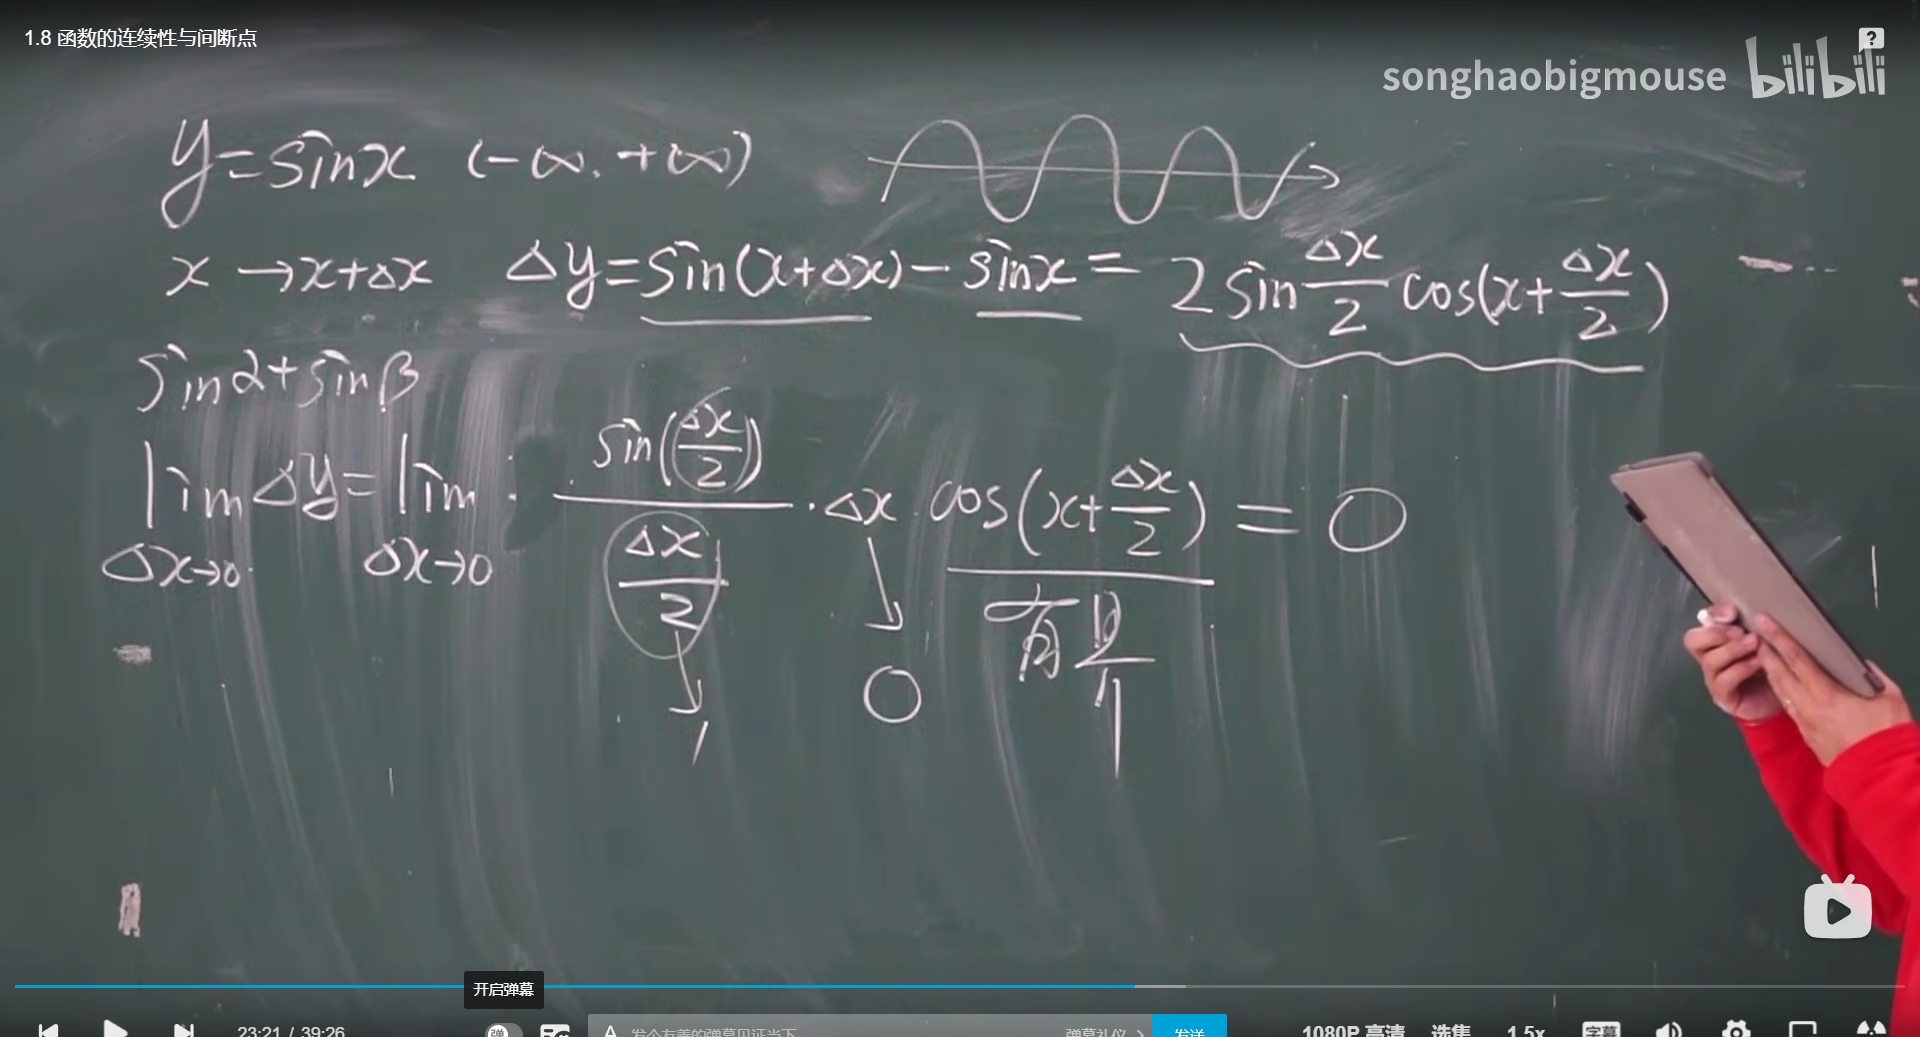 1.8 函数的连续性与间断点
songhaobigmouse bilibili
y=sinx (-∞,+∞)
x→x+Δx Δy=sin(x+Δx)-sinx=2sin Δx/2 cos(x+Δx/2)
sinα+sinβ
lim Δy=lim sin(Δx/2)/(Δx/2)·Δx cos(x+Δx/2)=0
Δx→0 Δx→0
有界
1 0
开启弹幕
23:21 / 39:26 弹 发个友善的弹幕见证当下 弹幕礼仪 发送 1080P 高清 选集 1.5x 字幕